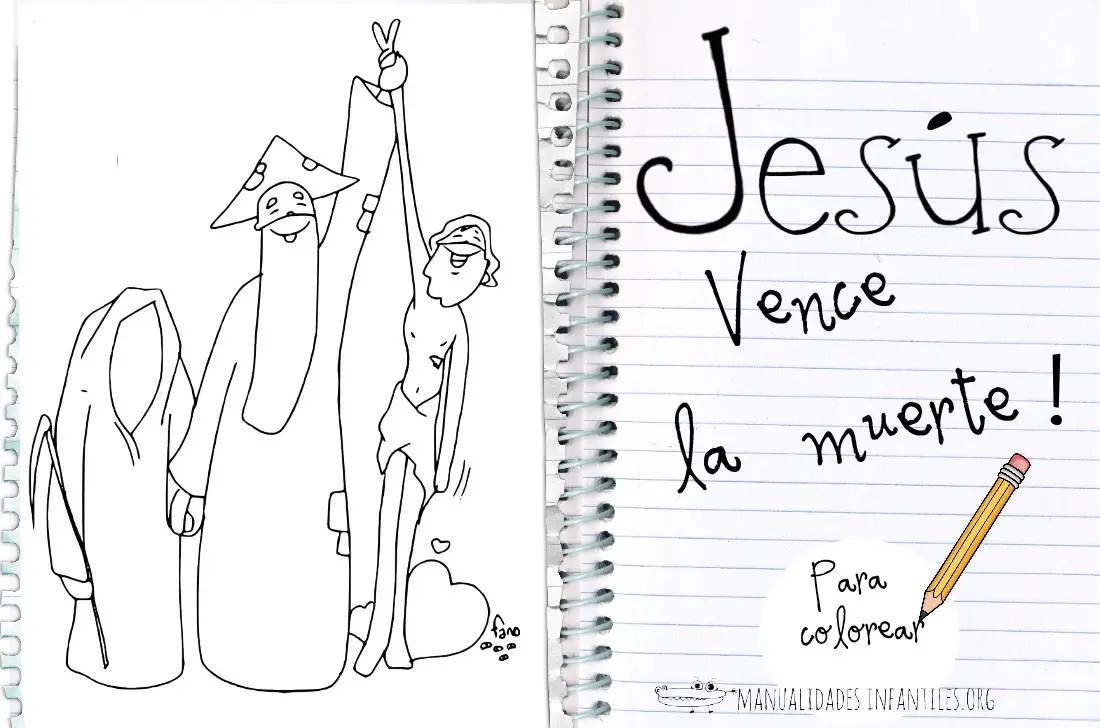 Jesús
Vence
la muerte!
Para
colorear
MANUALIDADES INFANTILES.ORG
fano